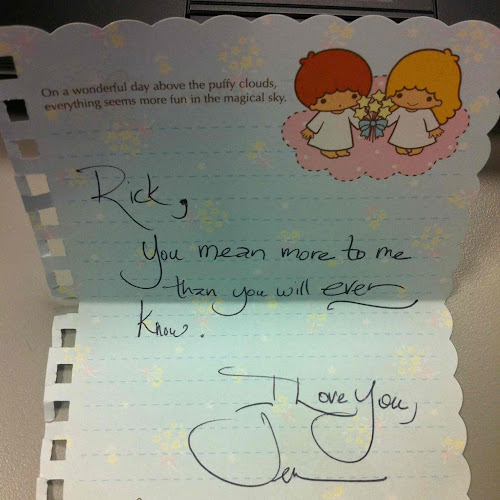 On a wonderful day above the puffy clouds,
everything seems more fun in the magical sky.
Rick,
You mean more to me
than you will ever
know.
I Love You,
Jen